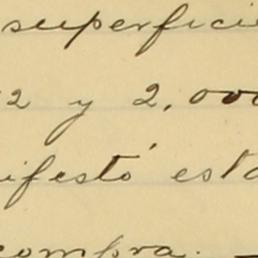 superfici
2 y 2,000
ifestó esta
compra.